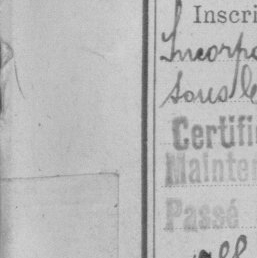 Inscri
Incorpo
sous le
Certifi
Mainten
Passé